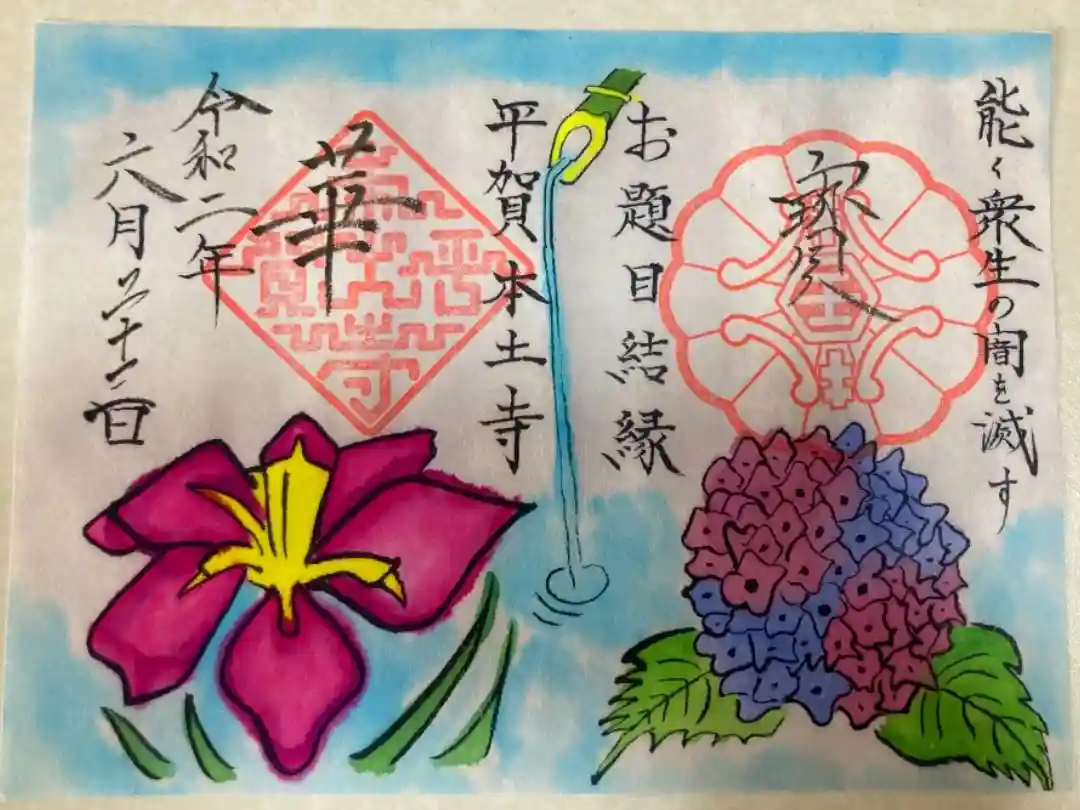 能く衆生の闇を滅す
寳
お題目結縁
平賀本土寺
華
令和二年
六月二十二日